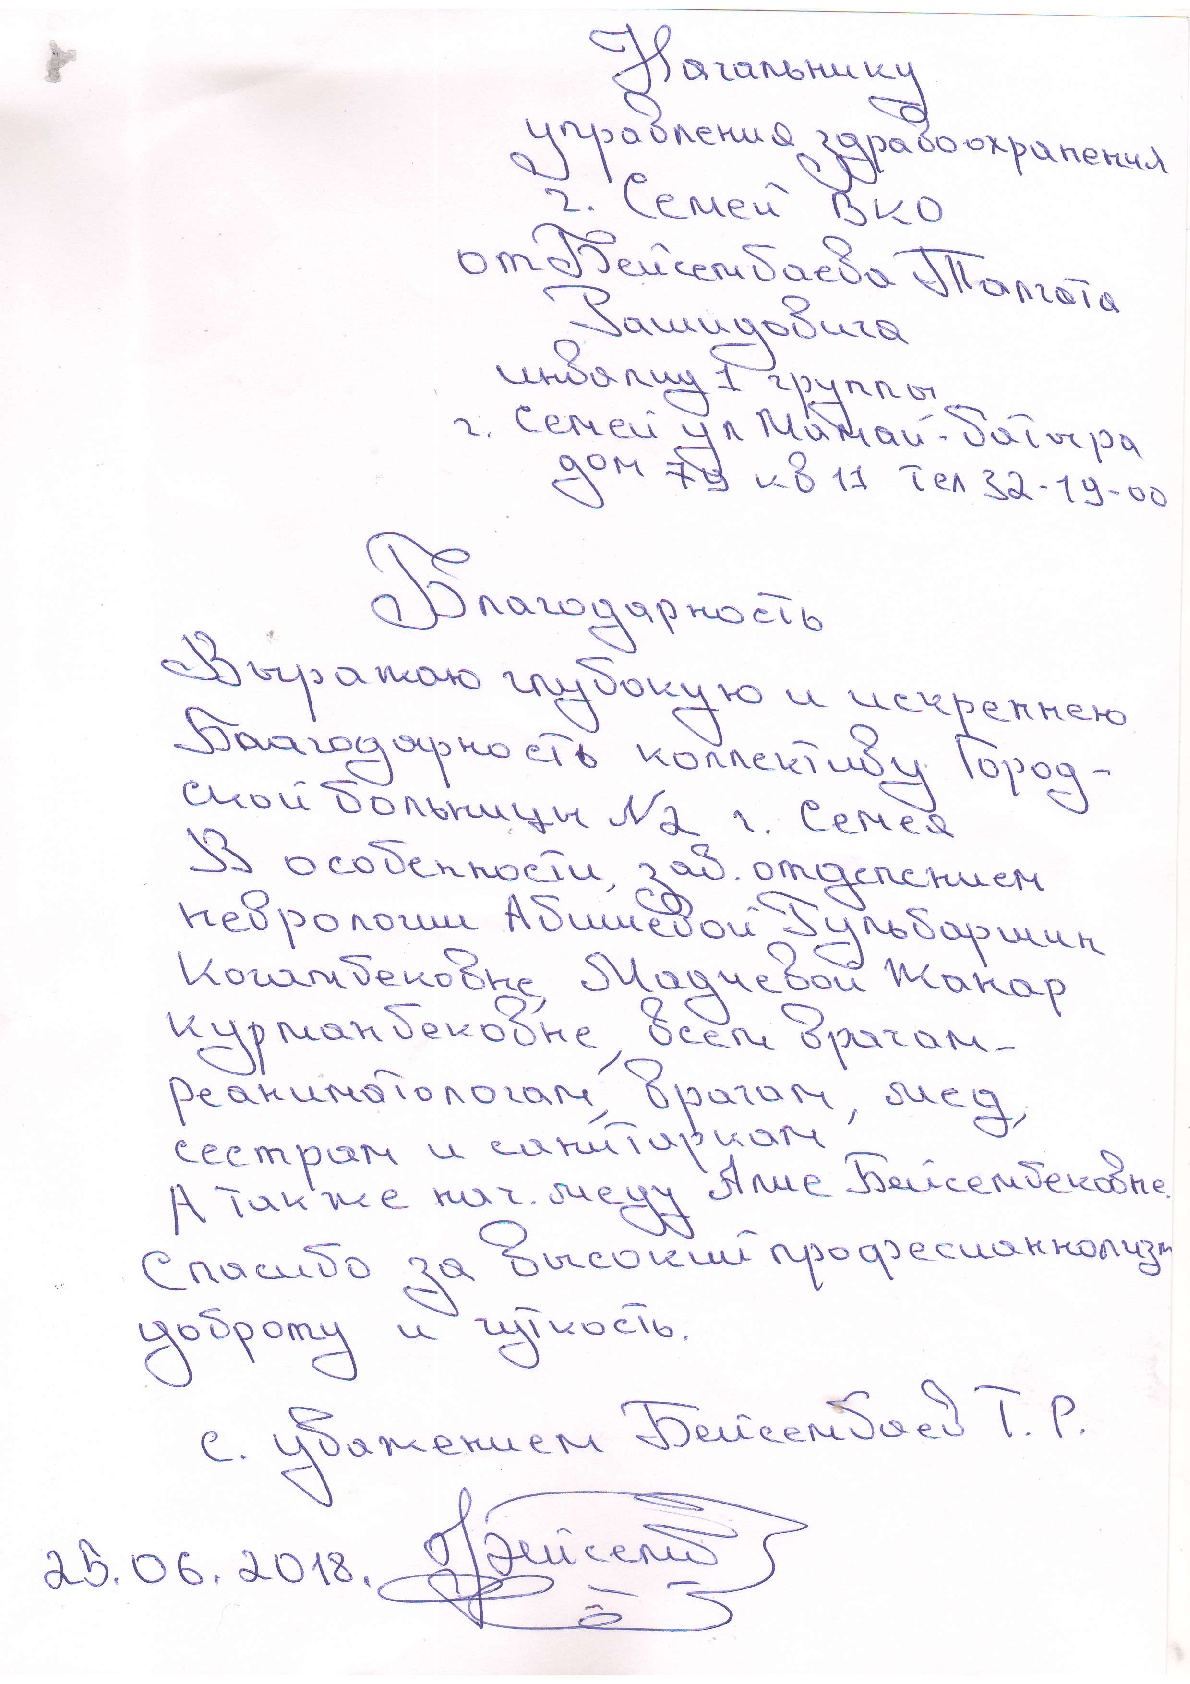 Начальнику
управления здравоохранения
г. Семей ВКО
от Бейсембаева Талгата
Рашидовича
инвалид 1 группы
г. Семей ул Мамай-батыра
дом кв 11 тел 32-19-00
Благодарность
Выражаю глубокую и искреннею
Благодарность коллективу Город-
ской больницы №2 г. Семея
В особенности, зав. отделением
неврологии Абишевой Гульбаршин
Когамбековне, Мадиевой Жанар
Курманбековне, всем врачам-
реаниматологам, врачам, мед,
сестрам и санитаркам
А также нач. меду Алие Бейсембековне.
Спасибо за высокий професианнолизм
доброту и чуткость.
с. уважением Бейсембаев Т. Р.
25.06.2018. Бейсемб